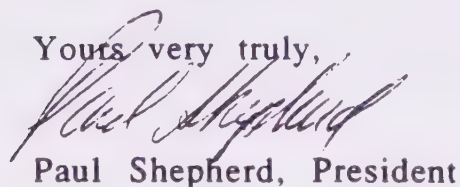 Yours very truly,
Paul Shepherd
Paul Shepherd, President